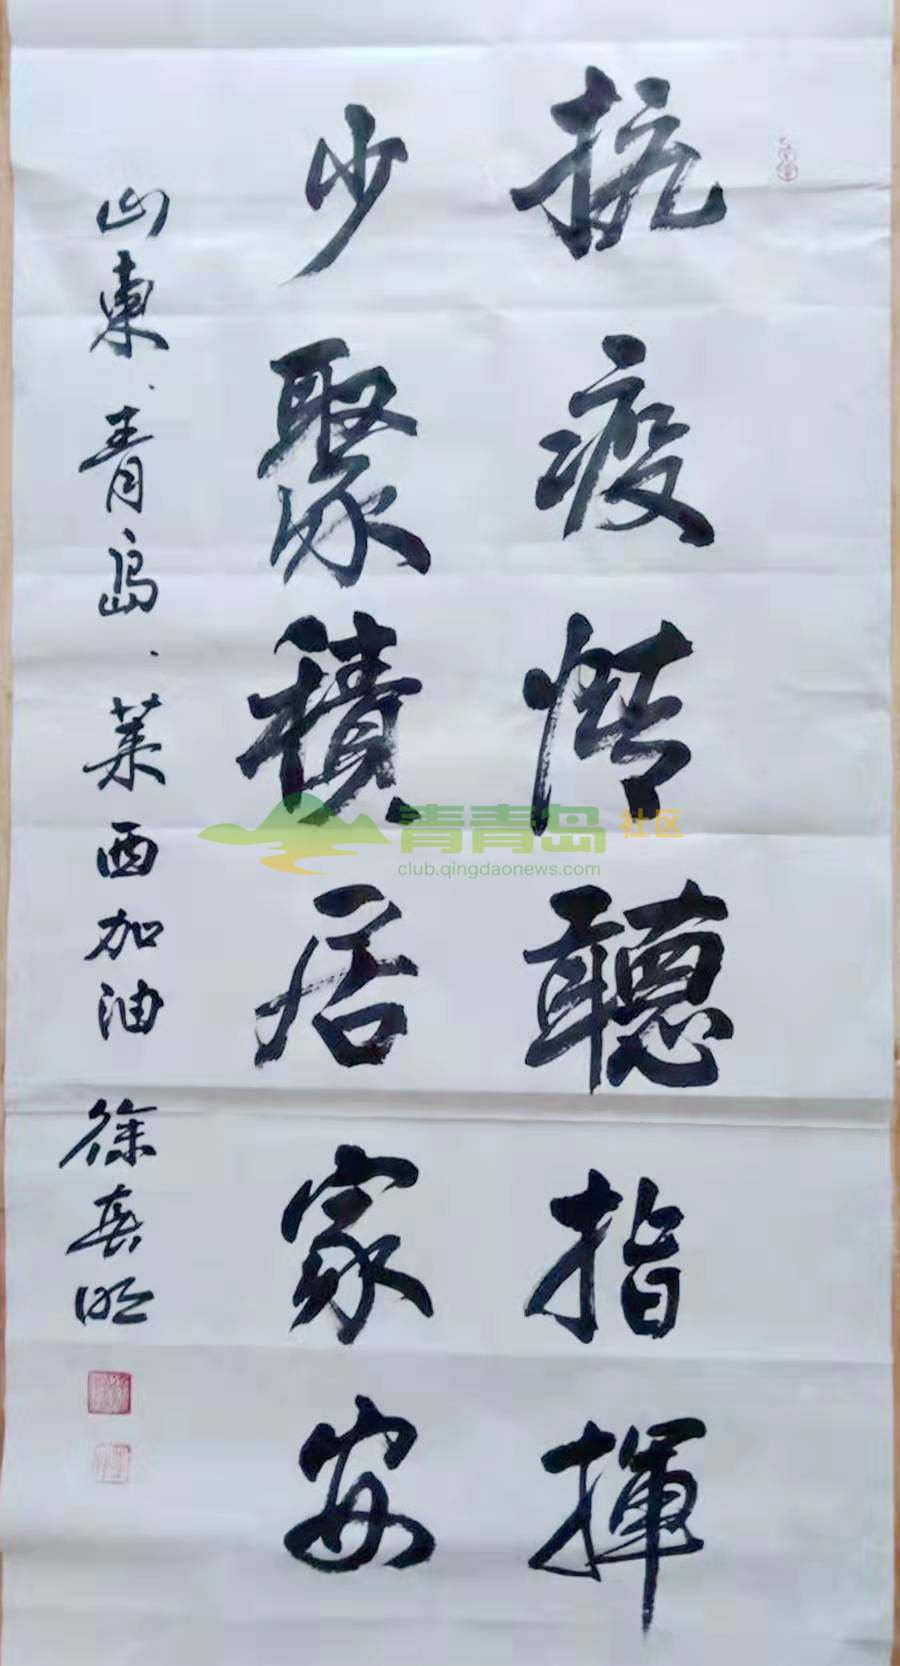 抗疫情聽指揮
少聚積居家安
山東、青島、萊西加油 徐春明
青青岛 社区
club.qingdaonews.com